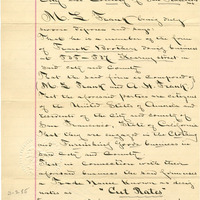 City and County of San Francisco
M. L. Frank being duly
sworn deposes and says
That he is a member of the firm
of Frank Brothers doing business
at Kearny street in
said City and County
That the said firm is composed of
M. L. Frank and A. H. Frank
That the aforesaid parties are citizens
of the United States of America and
residents of the City and county of
San Francisco, State of California
That they are engaged in the Clothing
and Furnishing Goods business in
said City and County.
That in connection with their
aforesaid business the said firm uses
a Trade Name known as doing
ness as "Cut Rates"